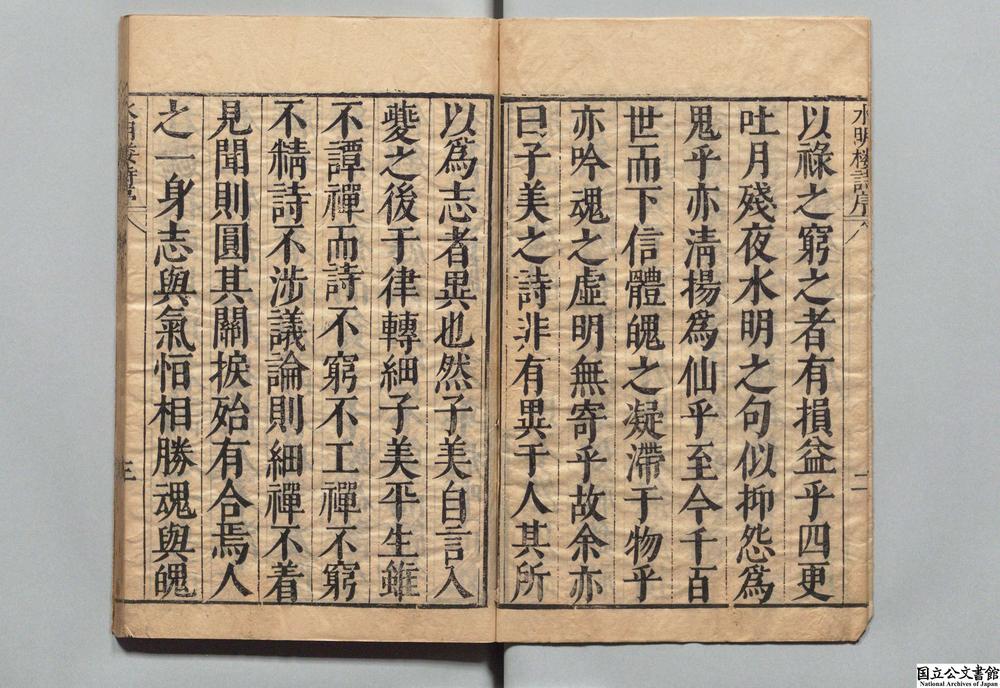 水明楼詩序
二
以祿之窮之者有損益乎四更
吐月殘夜水明之句似抑怨爲
鬼乎亦淸揚爲仙乎至今千百
世而下信體魄之凝滯于物乎
亦吟魂之虛明無寄乎故余亦
曰子美之詩非有異于人其所
以爲志者異也然子美自言入
夔之後于律轉細子美平生雖
不譚禪而詩不窮不工禪不窮
不精詩不涉議論則細禪不着
見聞則圓其關捩殆有合焉人
之一身志與氣恒相勝魂與魄
水明楼詩序
三
国立公文書館
National Archives of Japan